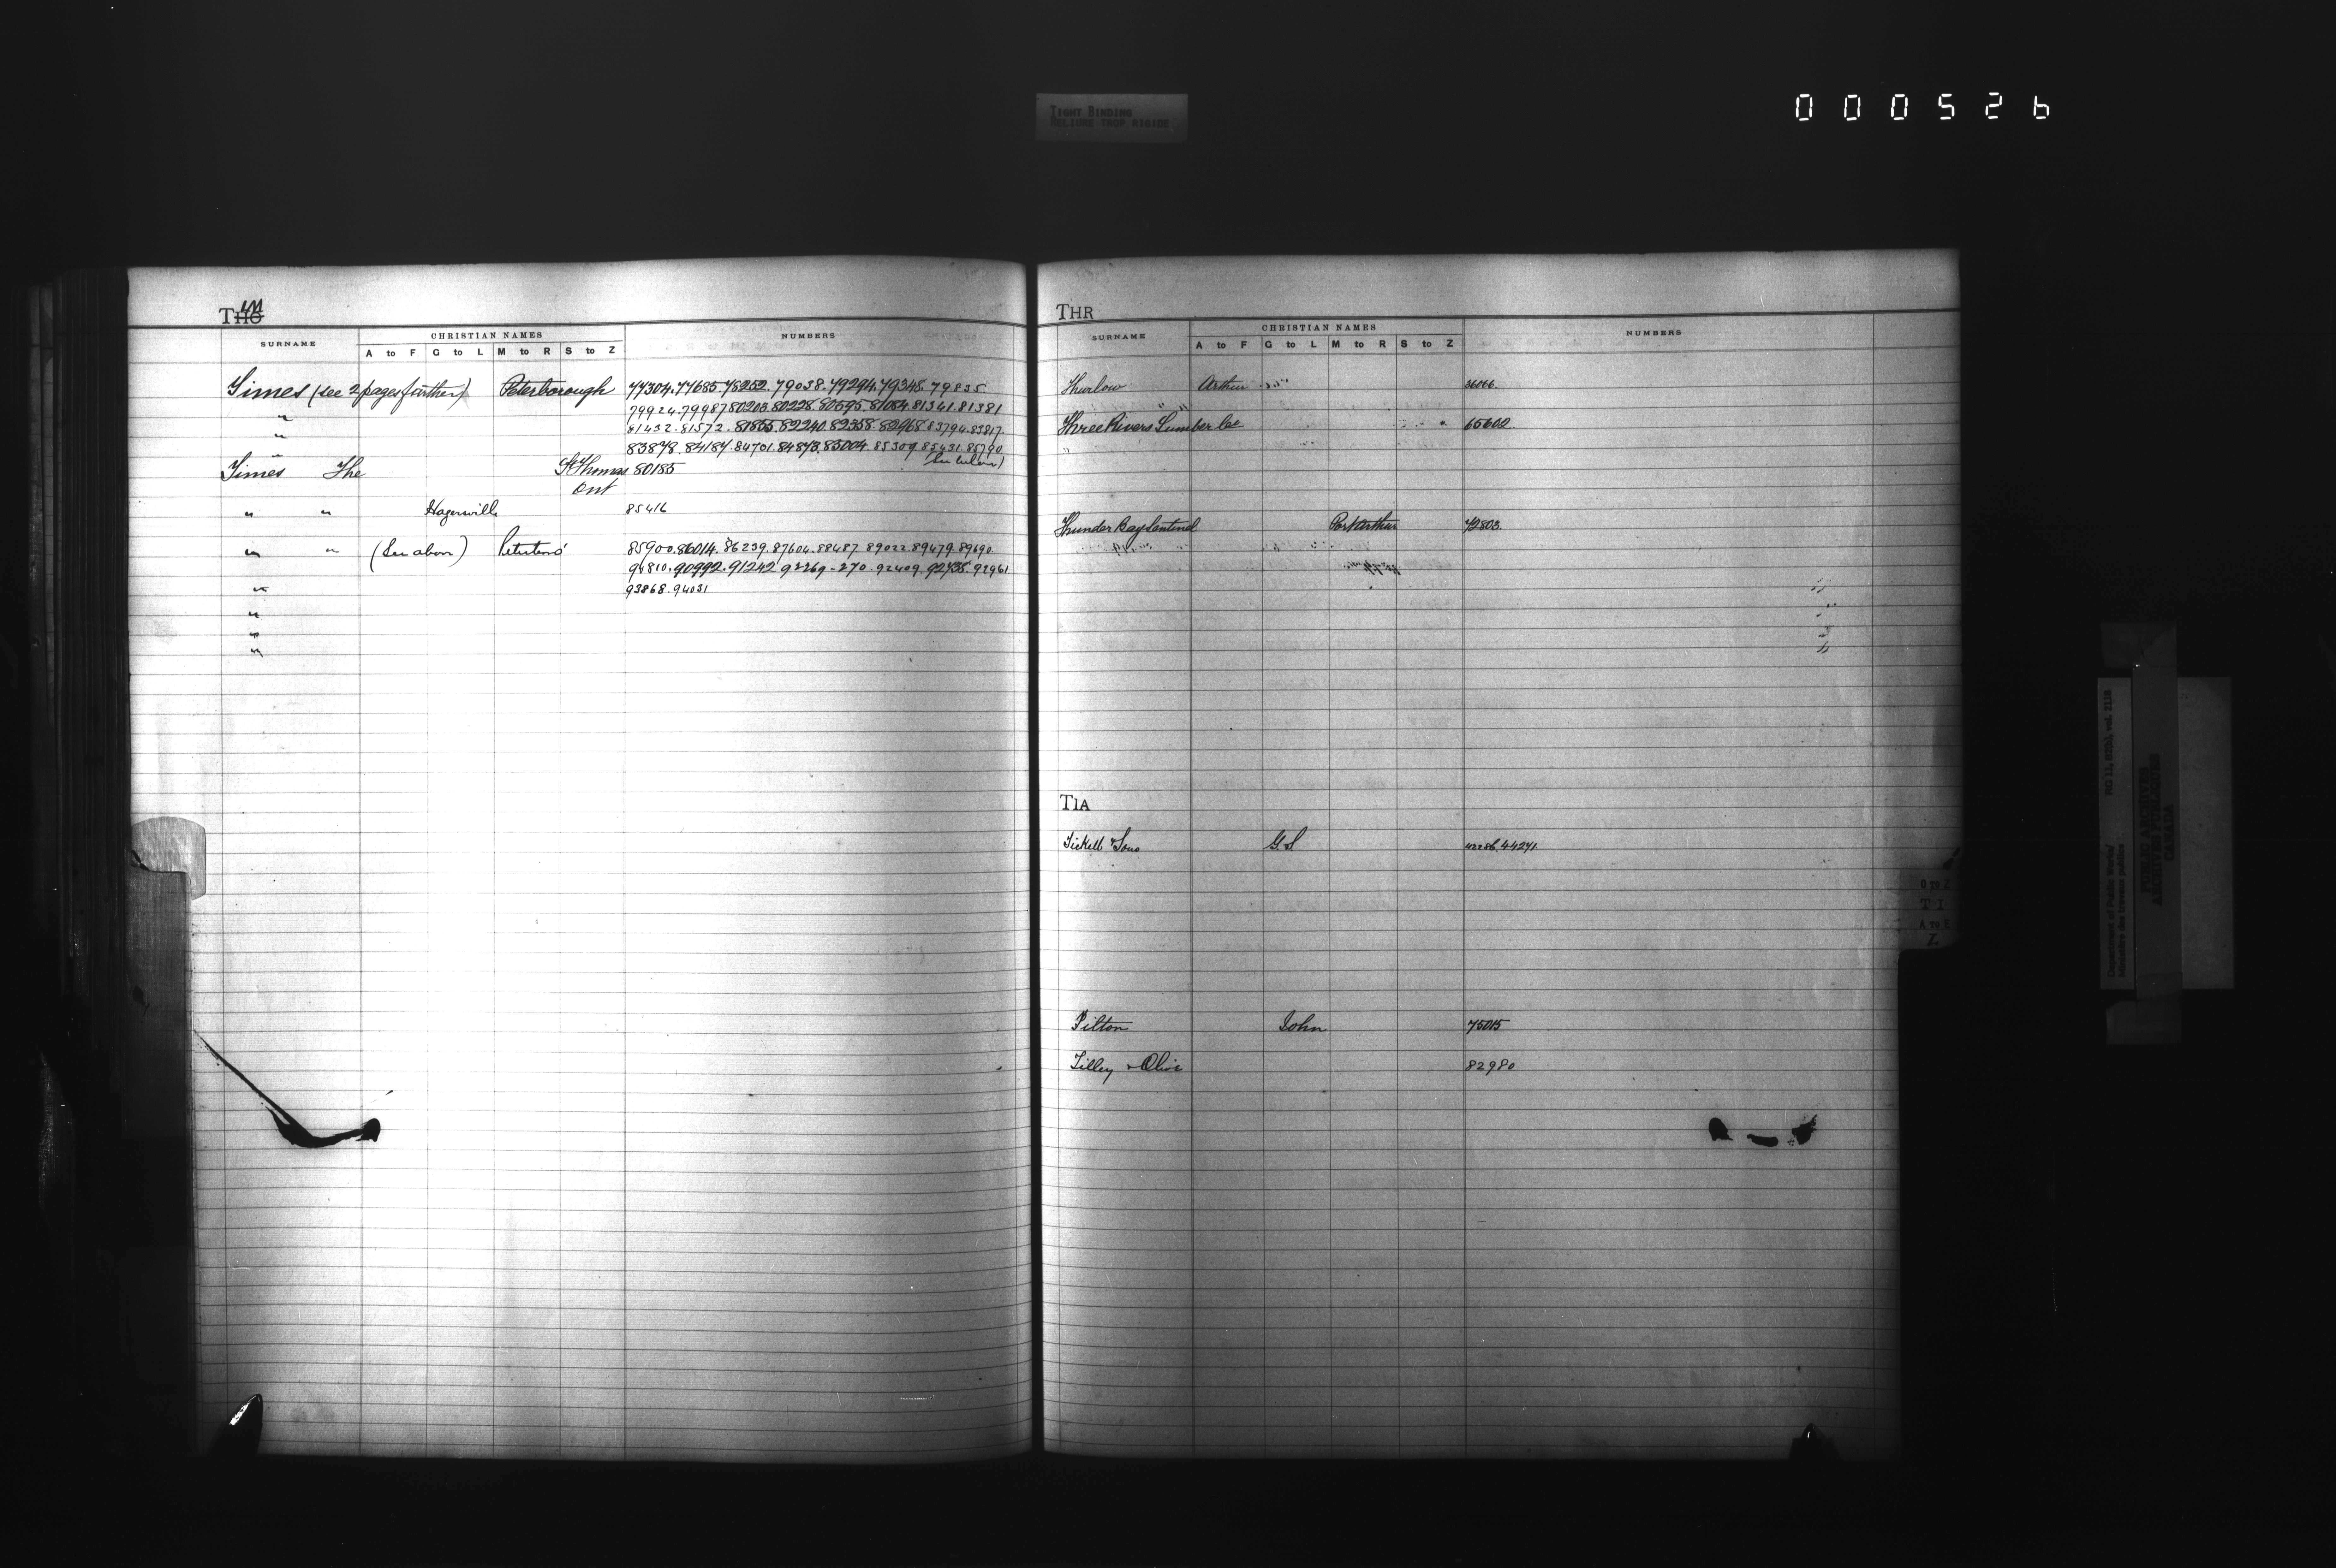 TIGHT BINDING
RELIURE TROP RIGIDE
000526
THO IM
SURNAME CHRISTIAN NAMES NUMBERS
A to F G to L M to R S to Z
Times (see 2 pages further) Peterborough 77304.77685.78252.79038.79294.79348.79835
" 79924.79987.80213.80228.80595.81084.81341.81381
" 81432.81572.81855.82240.82358.82968.83794.83817
" 83878.84184.84701.84873.85004.85309.85431.85790
(See below)
Times The St Thomas 80185
Ont
" " Hagersville 85416
" " (See above) Peterboro' 85900.86014.86239.87604.88487.89022.89479.89690
90992.91242 92269-270.92409.92738.92961
" 93868.94031
"
"
"
THR
SURNAME CHRISTIAN NAMES NUMBERS
A to F G to L M to R S to Z
Thurlow Arthur 36066
Three Rivers Lumber Co 65602
Thunder Bay Sentinel Port Arthur 72803
TIA
Tickell & Sons G.S 44271
Tilton John 75015
Tilley & Olive 82980
O to Z
T I
A to E
Z
Department of Public Works/
Ministère des travaux publics
RG 11, B2(b), vol. 2118
PUBLIC ARCHIVES
ARCHIVES PUBLIQUES
CANADA